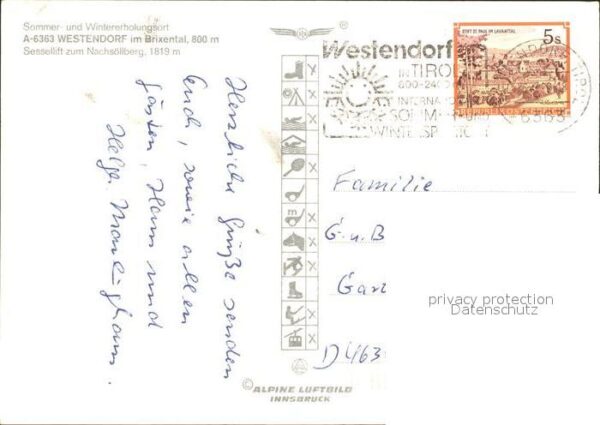 Sommer- und Wintererholungsort
A-6363 WESTENDORF im Brixental, 800 m
Sessellift zum Nachsöllberg, 1819 m
Herzliche Grüße senden
Euch, sowie allen
Gästen, Hans und
Helga
STIFT ST. PAUL IM LAVANTTAL
5 S
Westendorf
in TIROL
800-240
INTERNA
SOMM
WINTERSP
TIROL
6363
Familie
G. u. B
Gar
D 463
privacy protection
Datenschutz
© ALPINE LUFTBILD
INNSBRUCK